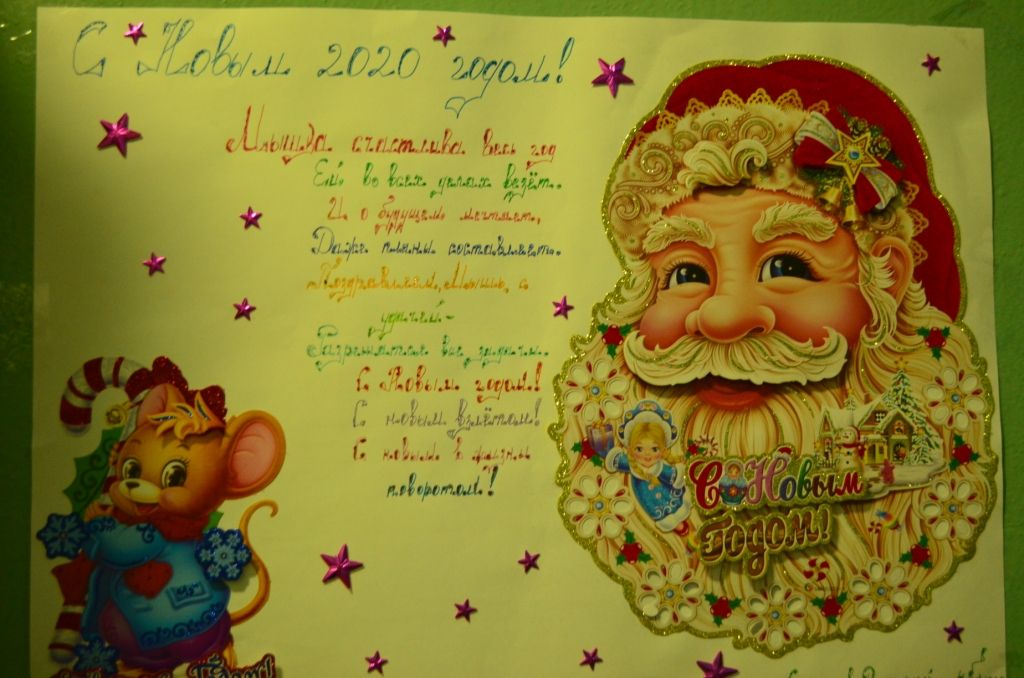 С Новым 2020 годом!
Мышка счастлива весь год
Ей во всех делах везёт.
И о будущем мечтает,
Даже планы составляет.
Поздравляем, Мышь, с
удачей -
Разрешатся все задачи.
С Новым годом!
С новым взлётом!
С новым в жизни
поворотом!
С Новым
Годом!